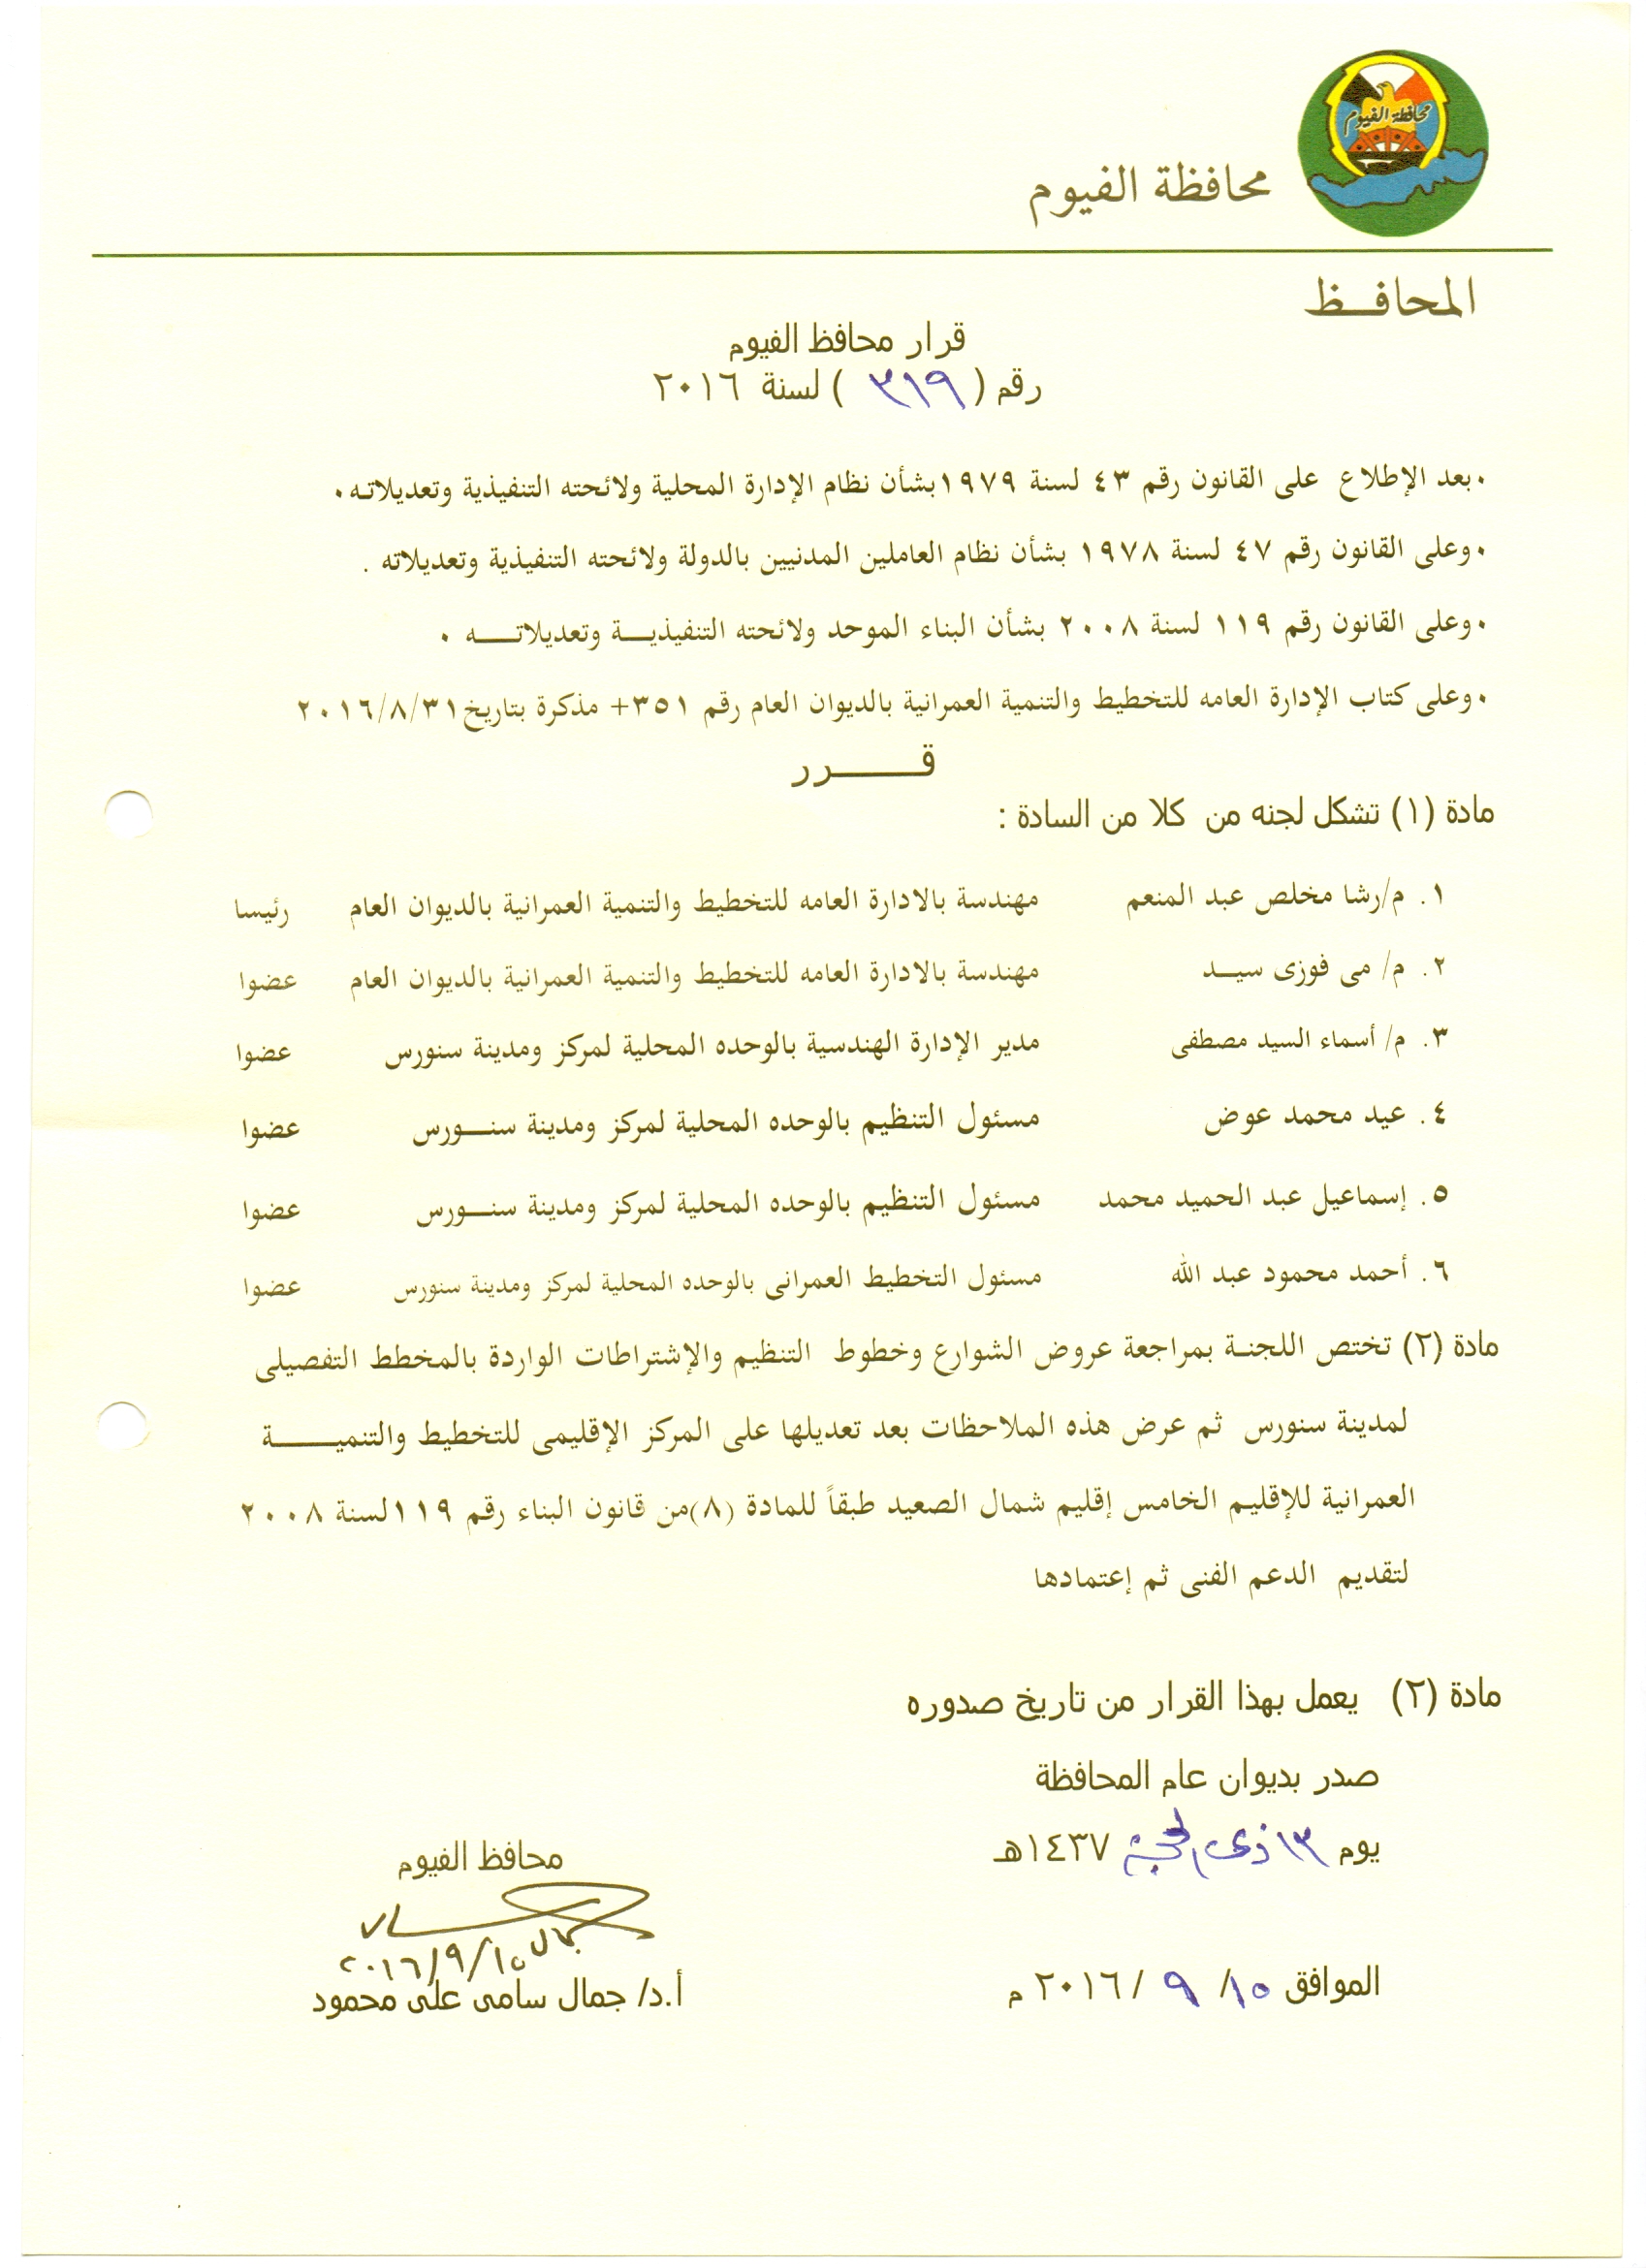 محافظة الفيوم
محافظة الفيوم
المحافـــظ
قرار محافظ الفيوم
رقم ( ٣١٩ ) لسنة ٢٠١٦
٠بعد الإطلاع على القانون رقم ٤٣ لسنة ١٩٧٩بشأن نظام الإدارة المحلية ولائحته التنفيذية وتعديلاته٠
٠وعلى القانون رقم ٤٧ لسنة ١٩٧٨ بشأن نظام العاملين المدنيين بالدولة ولائحته التنفيذية وتعديلاته .
٠وعلى القانون رقم ١١٩ لسنة ٢٠٠٨ بشأن البناء الموحد ولائحته التنفيذيـــة وتعديلاتـــــه ٠
٠وعلى كتاب الإدارة العامه للتخطيط والتنمية العمرانية بالديوان العام رقم ٣٥١+ مذكرة بتاريخ٢٠١٦/٨/٣١
قـــــــرر
مادة (١) تشكل لجنه من كلا من السادة :
١. م/رشا مخلص عبد المنعم مهندسة بالادارة العامه للتخطيط والتنمية العمرانية بالديوان العام رئيسا
٢. م/ مى فوزى سيـــد مهندسة بالادارة العامه للتخطيط والتنمية العمرانية بالديوان العام عضوا
٣. م/ أسماء السيد مصطفى مدير الإدارة الهندسية بالوحده المحلية لمركز ومدينة سنورس عضوا
٤. عيد محمد عوض مسئول التنظيم بالوحده المحلية لمركز ومدينة سنـــورس عضوا
٥. إسماعيل عبد الحميد محمد مسئول التنظيم بالوحده المحلية لمركز ومدينة سنـــورس عضوا
٦. أحمد محمود عبد الله مسئول التخطيط العمرانى بالوحده المحلية لمركز ومدينة سنورس عضوا
مادة (٢) تختص اللجنـة بمراجعة عروض الشوارع وخطوط التنظيم والإشتراطات الواردة بالمخطط التفصيلى
لمدينة سنورس ثم عرض هذه الملاحظات بعد تعديلها على المركز الإقليمى للتخطيط والتنميـــــــة
العمرانية للإقليم الخامس إقليم شمال الصعيد طبقاً للمادة (٨)من قانون البناء رقم ١١٩لسنة ٢٠٠٨
لتقديم الدعم الفنى ثم إعتمادها
مادة (٢) يعمل بهذا القرار من تاريخ صدوره
صدر بديوان عام المحافظة
يوم ١٣ ذى الحجة ١٤٣٧هـ
الموافق ١٥/ ٩ /٢٠١٦ م
محافظ الفيوم
٢٠١٦/٩/١٥
أ.د/ جمال سامى على محمود